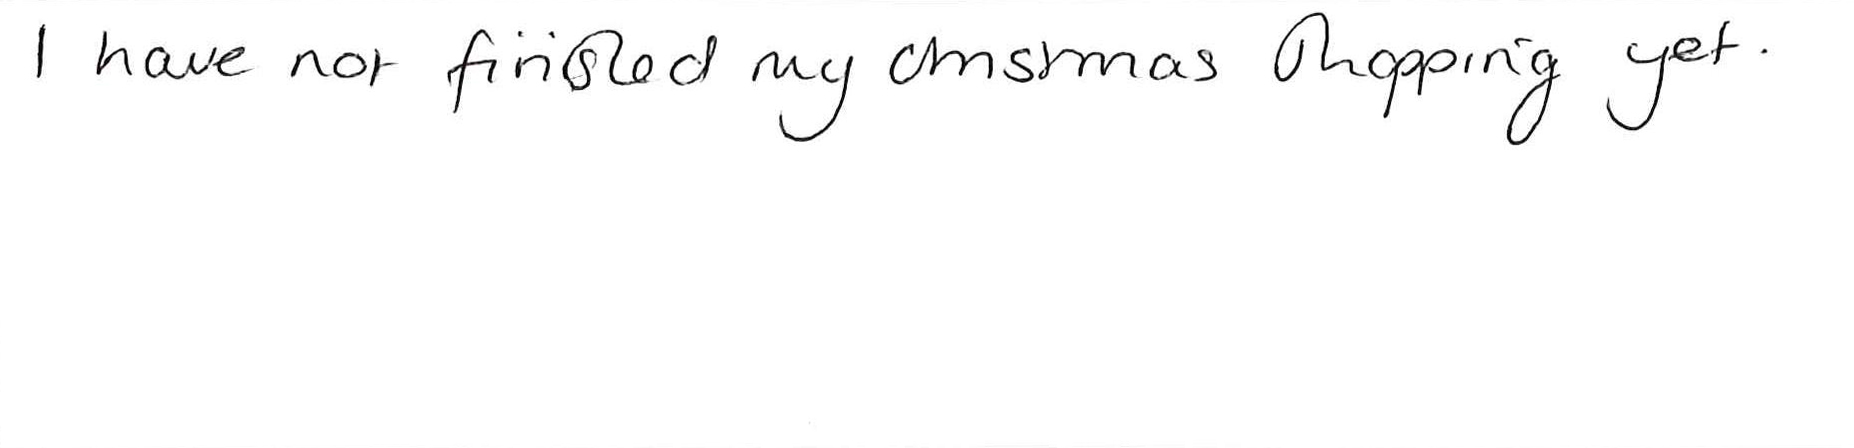 I have not finished my christmas shopping yet.